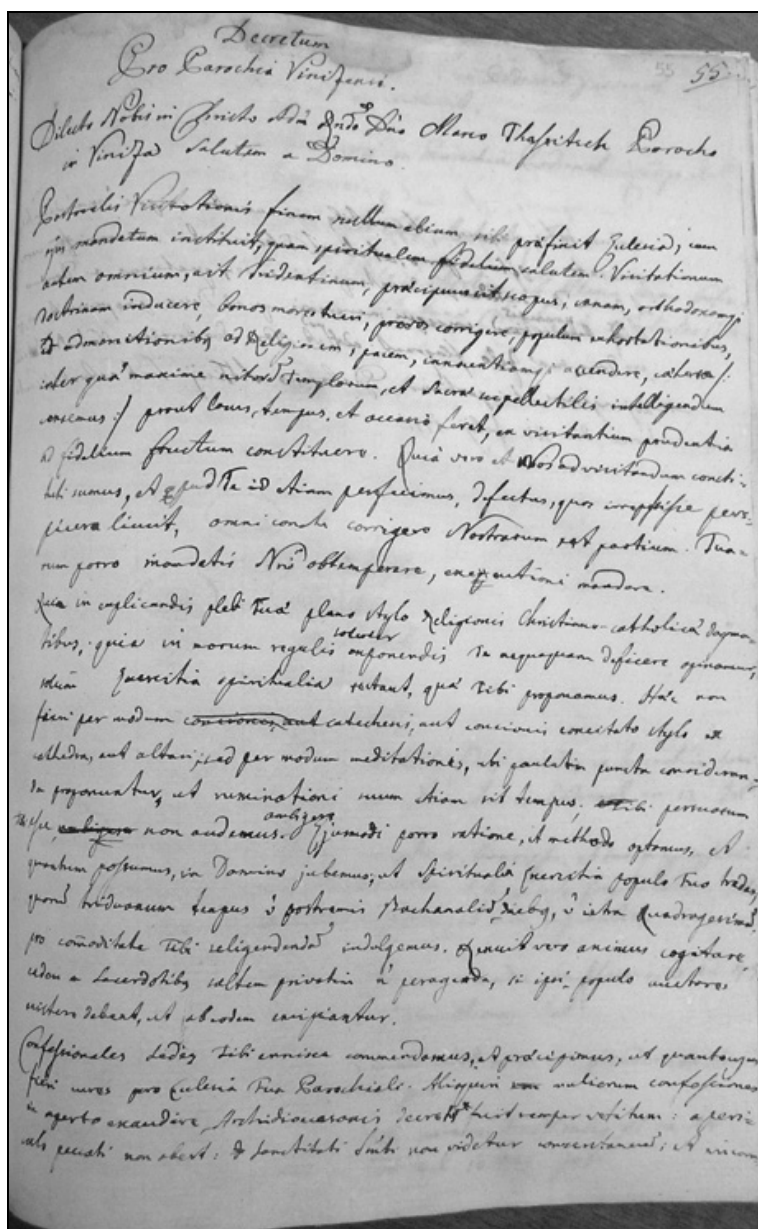 Decretum
Pro Parochia Vinizensi.
55 55
Dilecto Nobis in Christo Adm Rndo Dno Marco Parocho
in Viniza Salutem a Domino.
Pastoralis Visitationis finem nullum alium sibi præfinit Ecclesia, cum
ejus mandatum instituit, quam spiritualem fidelium salutem. Visitationum
autem omnium, ait Tridentinum, præcipuus sit scopus, sanam, orthodoxamq
doctrinam inducere, bonos mores tueri, pravos corrigere, populum exhortationibus,
& admonitionibq ad Religionem, pacem, innocentiamq accendere, cætera /:
inter quæ maxime nitorem Templorum, et sacræ supellectilis intelligendum
censemus :/ prout locus, tempus, et occasio feret, ex visitantium prudentia
ad fidelium fructum constituere. Quia vero et Nos ad visitandum consti-
tuti sumus, et apud Te id etiam perfecimus, defectus, quos irrepsisse pers-
picere licuit, omni conatu corrigere Nostrarum est partium. Tua-
rum porro mandatis Nris obtemperare, executioni mandare.
Quia in explicandis plebi Tuæ plano stylo Religionis Christiano-catholicæ dogma-
tibus, quia in morum regulis solenter exponendis Te nequaquam deficere opinamur,
solum Exercitia spiritualia restant, quæ Tibi proponamus. Hæc non
fieri per modum concionis, aut catechesis, aut concionis concitato stylo ex
cathedra, aut altari, sed per modum meditationis, ubi paulatim puncta consideran-
da proponuntur, ut ruminationi suum etiam sit tempus, Tibi persuasum
esse, non audemus ambigere. Ejusmodi porro ratione, et methodo optamus, et
quantum possumus, in Domino jubemus, ut Spiritualia Exercitia populo Tuo tradas,
quorum triduanum tempus è postremis Bachanalium diebq, è intra Quadragesimam,
pro comoditate Tibi seligendum indulgemus. Renuit vero animus cogitare
eadem a Sacerdotibq saltem privatim è peragenda, si ipsi populo auctores
existere debent, ut ab eodem excipiantur.
Confessionales Sedes Tibi enixe commendamus, et præcipimus, ut quantocyus
fieri cures pro Ecclesia Tua Parochiali. mulierum confessiones
in aperto exaudire, Archidioecesanis decretis fuit semper vetitum: a peri-
culo peccati non abest: & sanctitati Smti non videtur consentaneum; et